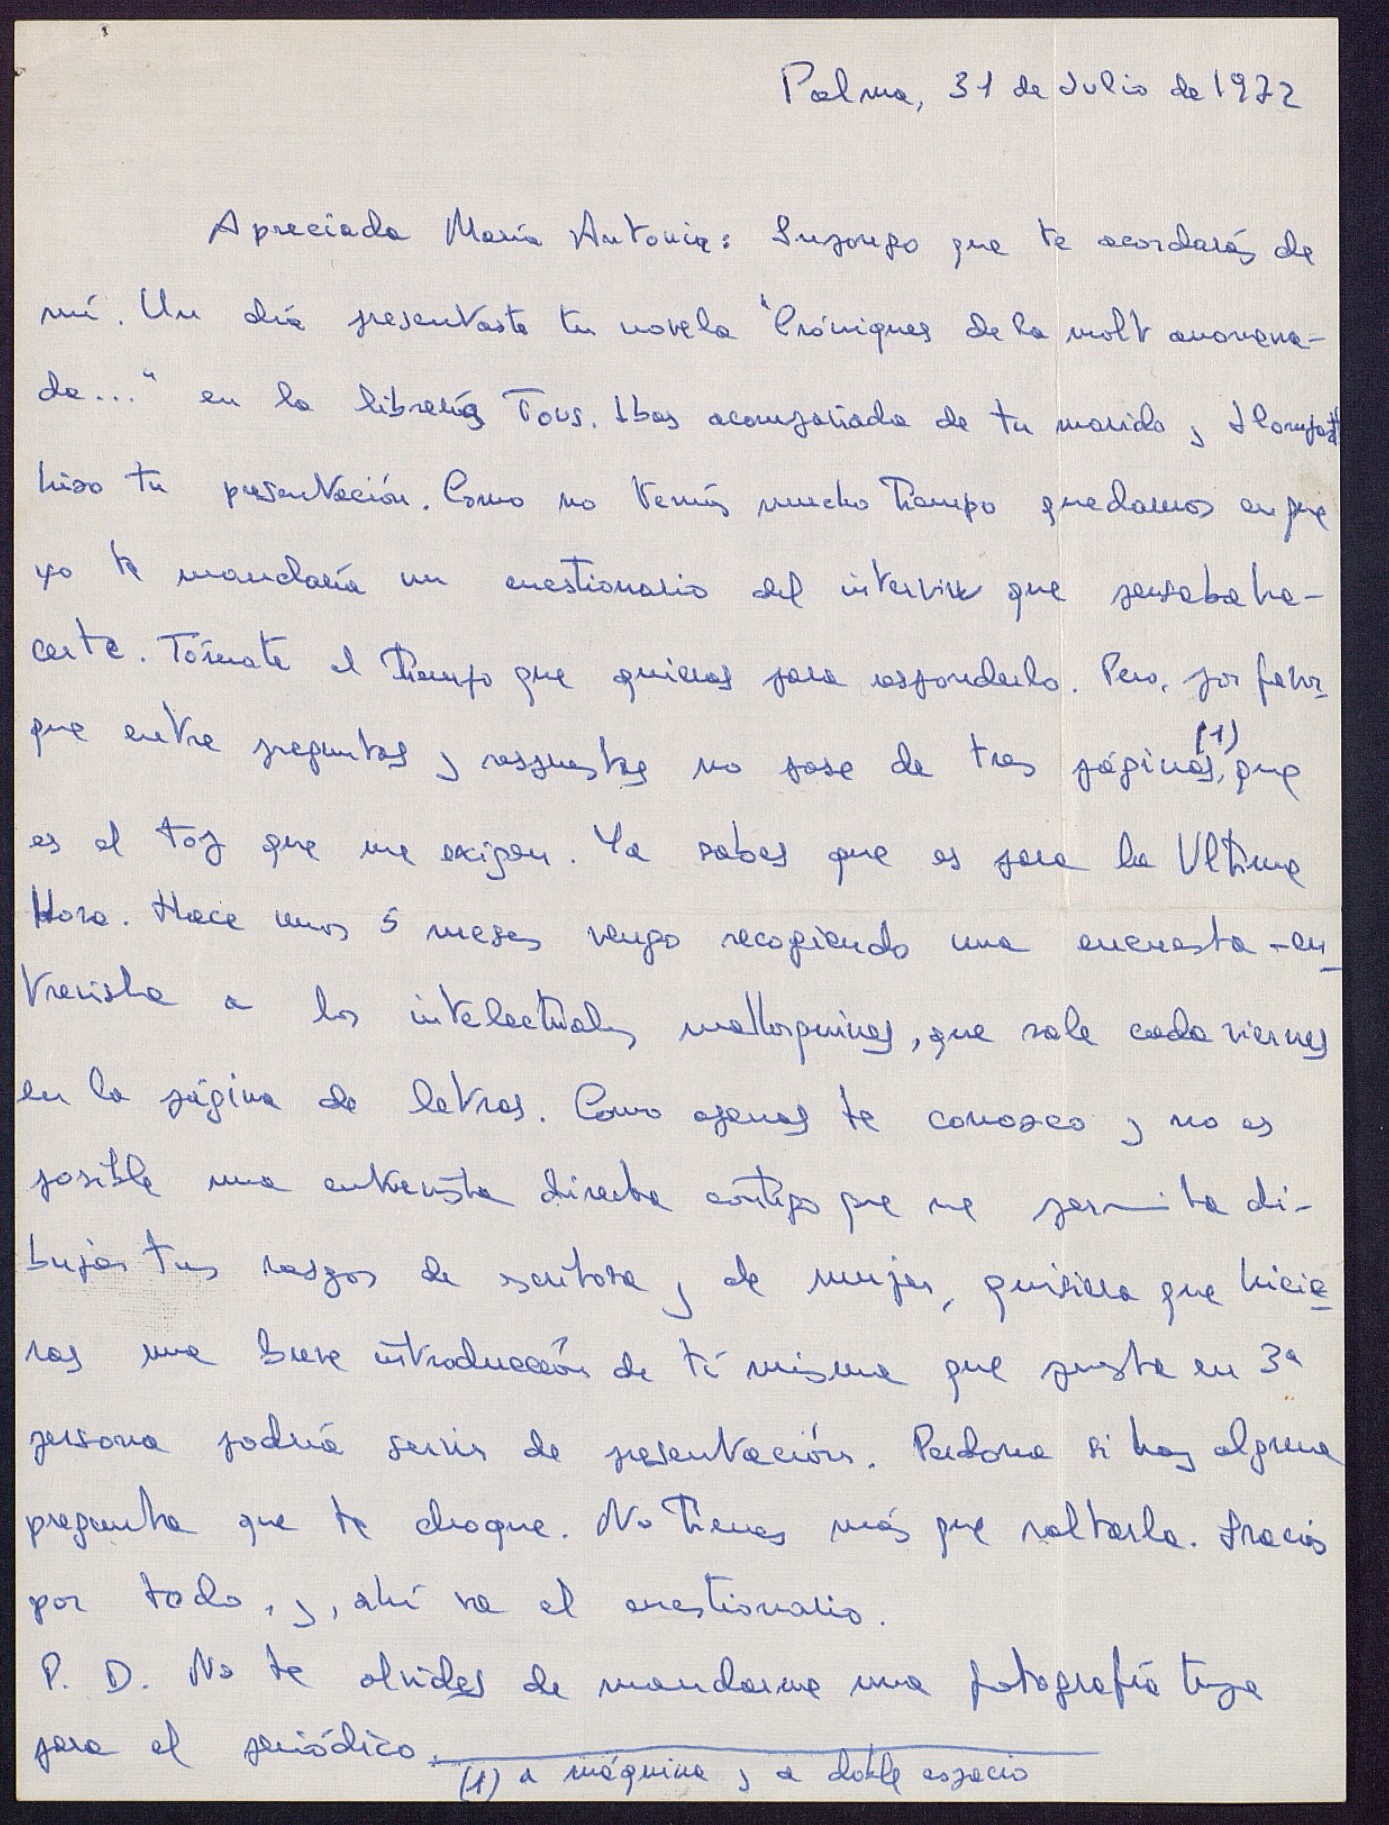 Palma, 31 de Julio de 1972
Apreciada María Antonia: Supongo que te acordarás de
mí. Un día presentaste tu novela "Cróniques de la molt anomena-
da..." en la librería Tous. Ibas acompañada de tu marido y Llompart
hizo tu presentación. Como no tenías mucho tiempo quedamos en que
yo te mandaría un cuestionario del interviu que pensaba ha-
certe. Tómate el tiempo que quieras para responderlo. Pero, por favor
que entre preguntas y respuestas no pase de tres páginas,(1) que
es el top que me exigen. Ya sabes que es para la Ultima
Hora. Hace unos 5 meses vengo recogiendo una encuesta-en-
trevista a los intelectuales mallorquines, que sale cada viernes
en la página de letras. Como apenas te conozco y no es
posible una entrevista directa contigo que me permita di-
bujar tus rasgos de escritora y de mujer, quisiera que hicie-
ras una breve introducción de tí misma que puesta en 3ª
persona podría servir de presentación. Perdona si hay alguna
pregunta que te choque. No tienes más que saltarla. Gracias
por todo, y, ahí va el cuestionario.
P. D. No te olvides de mandarme una fotografía tuya
para el periódico.
(1) a máquina y a doble espacio